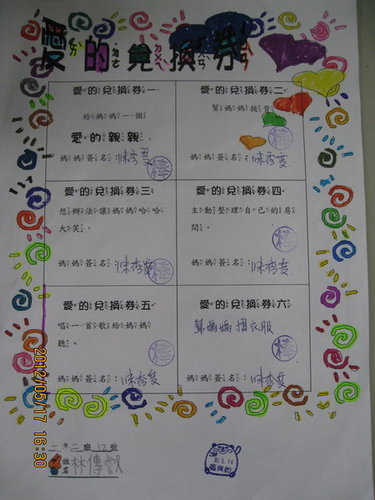 愛的兌換券
愛的兌換券一
給媽媽一個
愛的親親。
媽媽簽名：陳秀雯
愛的兌換券二
幫媽媽搥背。
媽媽簽名：陳秀雯
愛的兌換券三
想辦法讓媽媽哈哈
大笑。
媽媽簽名：陳秀雯
愛的兌換券四
主動整理自己的房
間。
媽媽簽名：陳秀雯
愛的兌換券五
唱一首歌給媽媽
聽。
媽媽簽名：陳秀雯
愛的兌換券六
幫媽媽摺衣服
媽媽簽名：陳秀雯
二年二班12號
姓名
2012/05/17 16:30